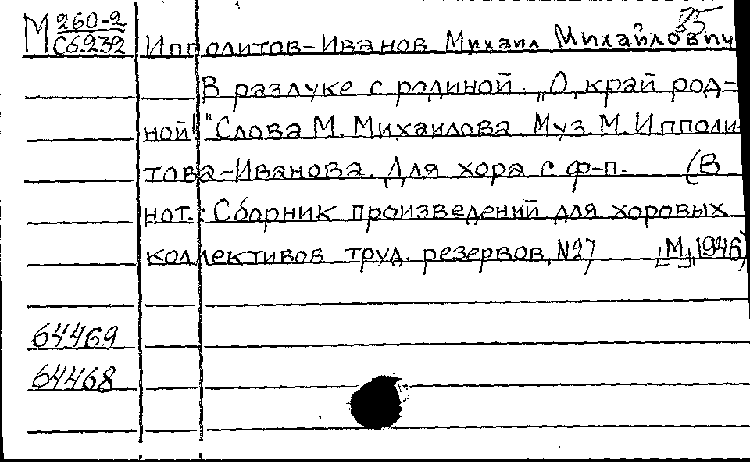 75
М 260-2
С6.232
Ипполитов-Иванов Михаил Михайлович
В разлуке с родиной. „О, край род-
ной!" Слова М. Михайлова Муз М. Ипполи-
това-Иванова. Для хора с ф-п. (В
нот.: Сборник произведений для хоровых
коллективов труд. резервов, №27 [М], 1946)
64469
64468